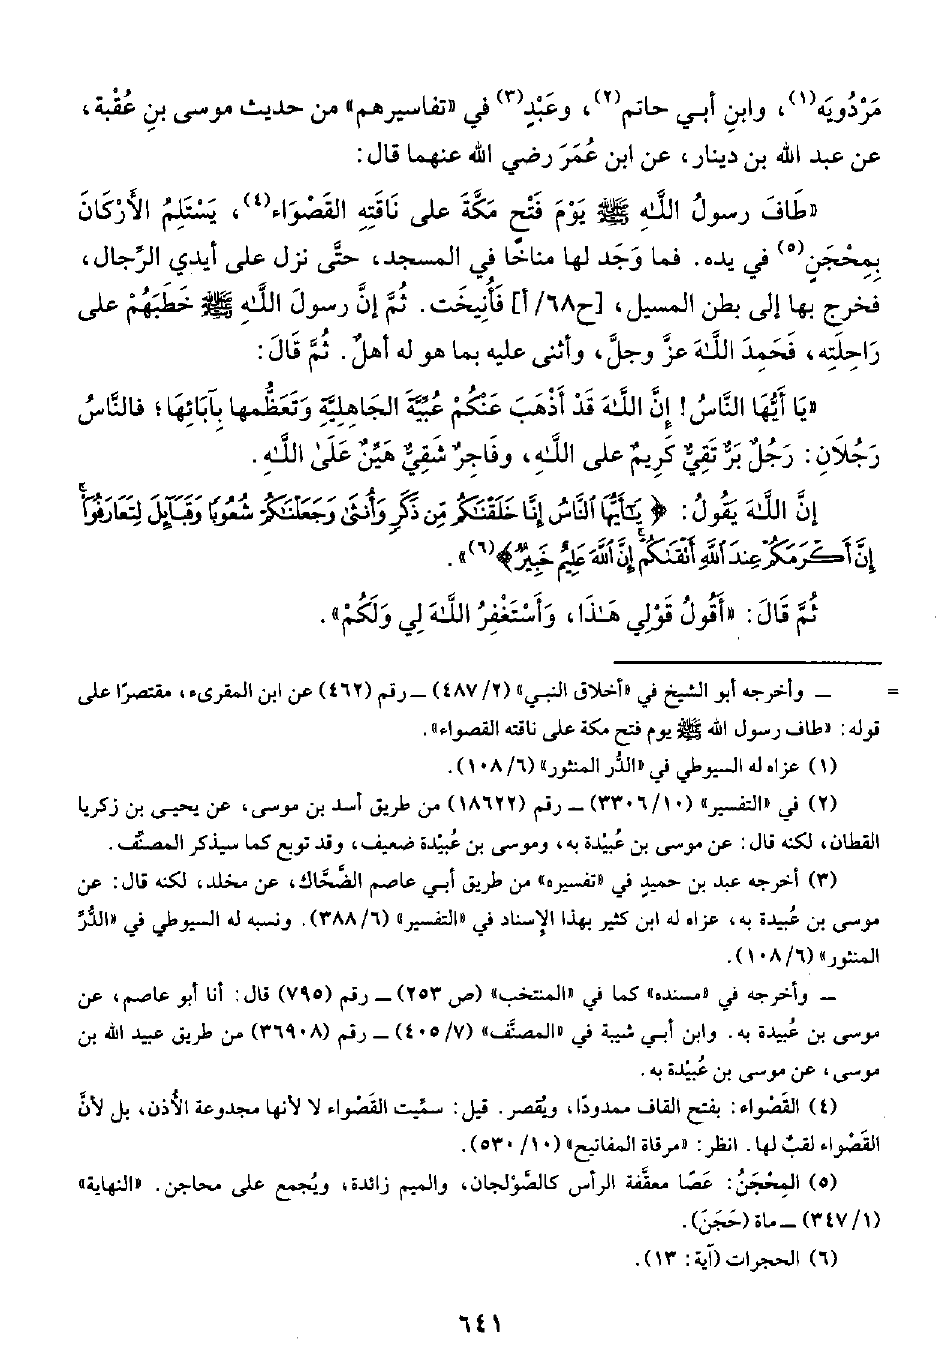 مَرْدُويَه(١)، وابنِ أبي حاتم(٢)، وعَبْدٍ(٣) في «تفاسيرهم» من حديث موسى بنِ عُقْبة،
عن عبد الله بن دينار، عن ابن عُمَرَ رضي الله عنهما قال:
«طَافَ رسولُ اللَّهِ ﷺ يَوْمَ فَتْحِ مَكَّةَ على نَاقَتِهِ القَصْوَاء(٤)، يَسْتَلِمُ الأَرْكَانَ
بِمِحْجَنٍ(٥) في يده. فما وَجَد لها مناخًا في المسجد، حتَّى نزل على أيدي الرِّجال،
فخرج بها إلى بطن المسيل، [ح٦٨/ أ] فَأُنِيخَت. ثُمَّ إنَّ رسولَ اللَّهِ ﷺ خَطَبَهُمْ على
رَاحِلَتِه، فَحَمِدَ اللَّهَ عزَّ وجلَّ، وأثنى عليه بما هو له أهلٌ. ثُمَّ قَالَ:
«يَا أَيُّهَا النَّاسُ! إنَّ اللَّهَ قَدْ أَذْهَبَ عَنْكُمْ عُبِّيَّةَ الجَاهِلِيَّةِ وَتَعَظُّمها بِآبَائِهَا؛ فالنَّاسُ
رَجُلَانِ: رَجُلٌ بَرٌّ تَقِيٌّ كَرِيمٌ على اللَّهِ، وفَاجِرٌ شَقِيٌّ هَيِّنٌ عَلَىٰ اللَّهِ.
إنَّ اللَّهَ يَقُولُ: ﴿ يَـٰٓأَيُّهَا ٱلنَّاسُ إِنَّا خَلَقْنَـٰكُم مِّن ذَكَرٍ وَأُنثَىٰ وَجَعَلْنَـٰكُمْ شُعُوبًا وَقَبَآئِلَ لِتَعَارَفُوٓا۟ۚ
إِنَّ أَكْرَمَكُمْ عِندَ ٱللَّهِ أَتْقَىٰكُمْۚ إِنَّ ٱللَّهَ عَلِيمٌ خَبِيرٌ﴾(٦)».
ثُمَّ قَالَ: «أَقُولُ قَوْلِي هَـٰذَا، وَأَسْتَغْفِرُ اللَّهَ لِي وَلَكُمْ».
= ــ وأخرجه أبو الشيخ في «أخلاق النبي» (٢/ ٤٨٧) ــ رقم (٤٦٢) عن ابن المقرىء، مقتصرًا على
قوله: «طاف رسول الله ﷺ يوم فتح مكة على ناقته القصواء».
(١) عزاه له السيوطي في «الدُّر المنثور» (٦/ ١٠٨).
(٢) في «التفسير» (١٠/ ٣٣٠٦) ــ رقم (١٨٦٢٢) من طريق أسد بن موسى، عن يحيى بن زكريا
القطان، لكنه قال: عن موسى بن عُبيْدة به، وموسى بن عُبيْدة ضعيف، وقد توبع كما سيذكر المصنِّف.
(٣) أخرجه عبد بن حميدٍ في «تفسيره» من طريق أبي عاصم الضَّحَّاك، عن مخلد، لكنه قال: عن
موسى بن عُبيدة به، عزاه له ابن كثير بهذا الإسناد في «التفسير» (٦/ ٣٨٨). ونسبه له السيوطي في «الدُّرِّ
المنثور» (٦/ ١٠٨).
ــ وأخرجه في «مسنده» كما في «المنتخب» (ص ٢٥٣) ــ رقم (٧٩٥) قال: أنا أبو عاصم، عن
موسى بن عُبيدة به. وابن أبي شيبة في «المصنَّف» (٧/ ٤٠٥) ــ رقم (٣٦٩٠٨) من طريق عبيد الله بن
موسى، عن موسى بن عُبيْدة به.
(٤) القَصْواء: بفتح القاف ممدودًا، ويُقصر. قيل: سمِّيت القَصْواء لا لأنها مجدوعة الأُذن، بل لأنَّ
القَصْواء لقبٌ لها. انظر: «مرقاة المفاتيح» (١٠/ ٥٣٠).
(٥) المِحْجَنُ: عَصًا معقَّفة الرأس كالصَّوْلجان، والميم زائدة، ويُجمع على محاجن. «النهاية»
(١/ ٣٤٧) ــ ماة (حَجَنَ).
(٦) الحجرات (آية: ١٣).
٦٤١